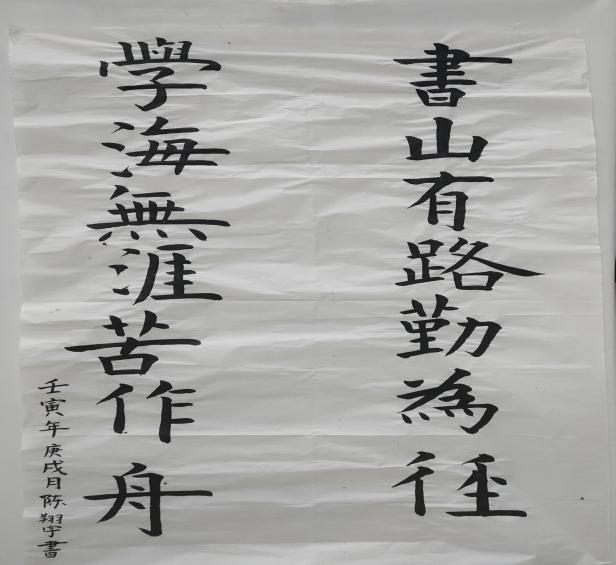 書山有路勤為徑
學海無涯苦作舟
壬寅年庚戌月陈翔宇書